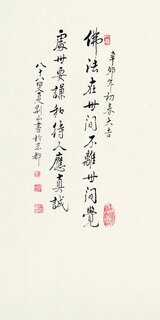 辛卯年初春大吉
佛法在世间不離世间覺
處世要謙和待人應真誠
八十八叟
書於京都